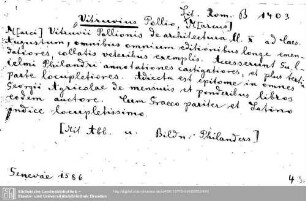 Lit. Rom. B 1403
Vitruvius Pollio, M[arcus]
M[arci] Vitruvii Pollionis de architectura ll. X ad Caes.
Augustum, omnibus omnium editionibus longe emen-
datiores, collatis veteribus exemplis. Accesserunt Gu-
lielmi Philandri annotationes castigatiores, et plus tertia
parte locupletiores. Adiecta est epitome in omnes
Georgii Agricolae de mensuris et ponderibus libros
eodem autore. Cum Graeco pariter et Latino
indice locupletissimo.
[Mit Abb. u. Bildn. Philanders]
Genevae 1586
4